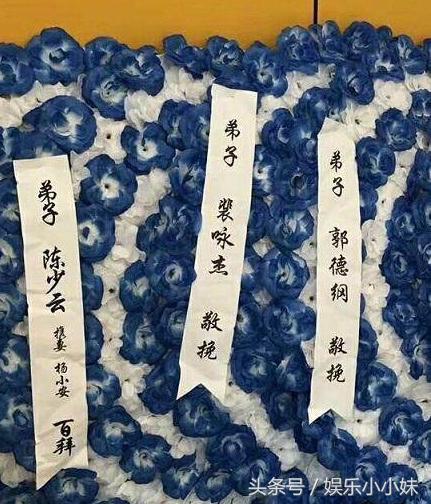 弟子 陈少云 携妻 杨小安 百拜
弟子 裴咏杰 敬挽
弟子 郭德纲 敬挽
头条号 / 娱乐小小妹